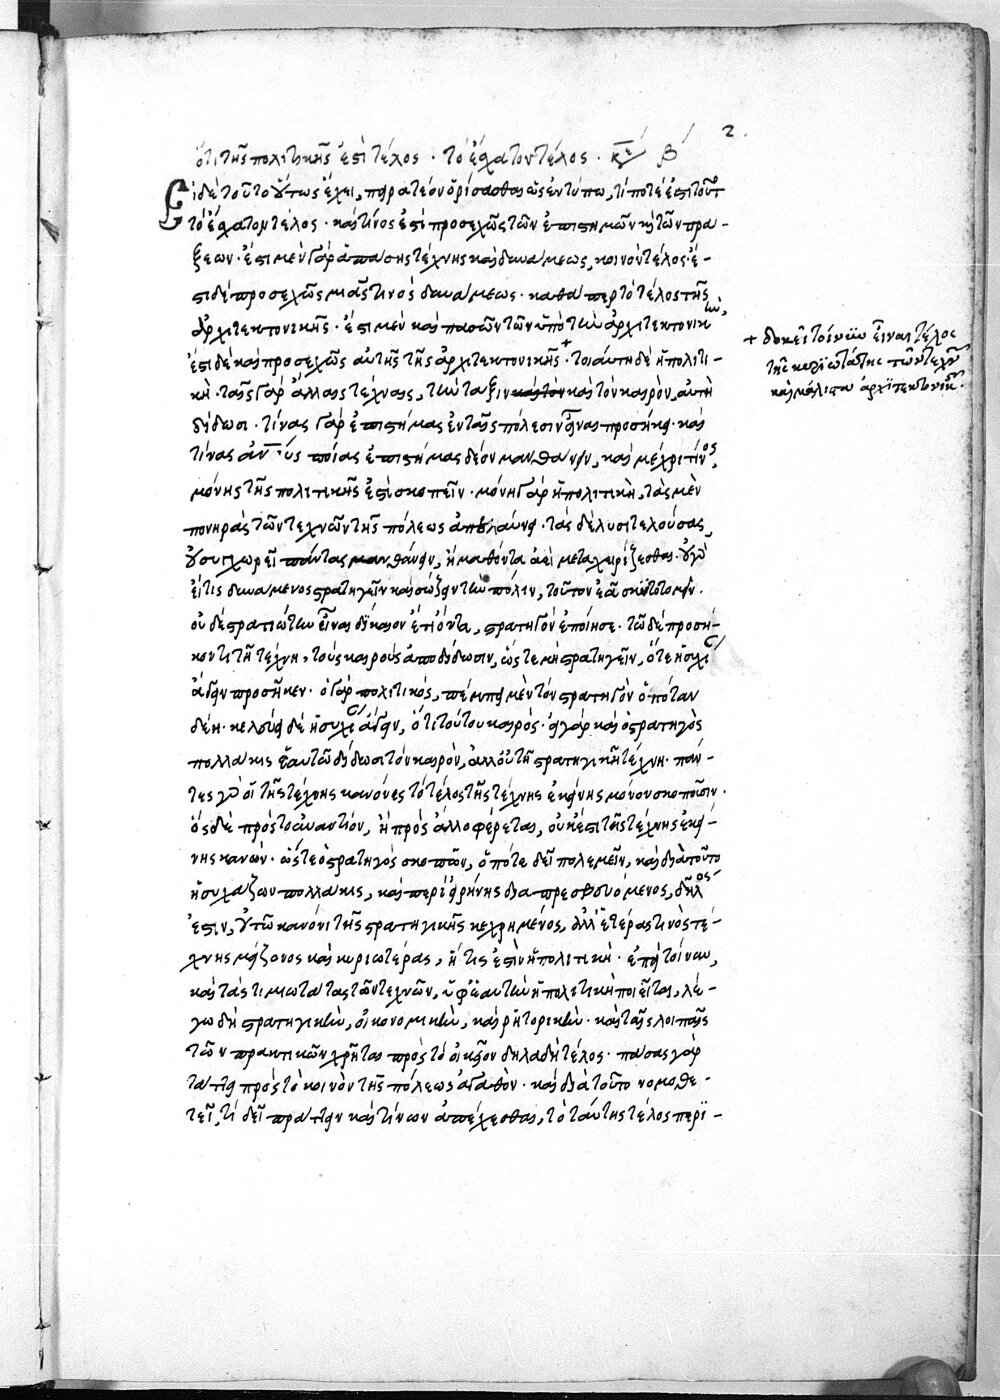 2.
ὅτι τῆς πολιτικῆς ἐστὶ τέλος · τὸ ἔσχατον τέλος · κεφ β′
Εἰ δὲ τοῦτο οὕτως ἔχει, πειρατέον ὁρίσασθαι ὡς ἐν τύπῳ, τί ποτέ ἐστι τοῦτο
τὸ ἔσχατον τέλος · καὶ τίνος ἐστὶ προσεχῶς τῶν ἐπιστημῶν καὶ τῶν πρα-
ξεων · ἔστι μὲν γὰρ ἁπάσης τέχνης καὶ δυνάμεως, κοινὸν τέλος · ἔ-
στι δὲ προσεχῶς μιᾶς τινὸς δυνάμεως · καθάπερ τὸ τέλος τῆς
ἀρχιτεκτονικῆς · ἔστι μὲν καὶ πασῶν τῶν ὑπὸ τὴν ἀρχιτεκτονικήν,
ἔστι δὲ καὶ προσεχῶς αὐτῆς τῆς ἀρχιτεκτονικῆς + · τοιαύτη δὲ ἡ πολιτι-
κή · ταῖς γὰρ ἄλλαις τέχναις, τὴν τάξιν καὶ τὸν καὶ τὸν καιρὸν, αὐτὴ
δίδωσι · τίνας γὰρ ἐπιστήμας ἐν ταῖς πόλεσιν εἶναι προσήκει · καὶ
τίνας ποίας ἐπιστήμας δέον μανθάνειν, καὶ μέχρι τίνος,
μόνης τῆς πολιτικῆς ἐστὶ σκοπεῖν · μόνη γὰρ ἡ πολιτικὴ, τὰς μὲν
πονηρὰς τῶν τεχνῶν τῆς πόλεως ἀπελαύνει · τὰς δὲ λυσιτελούσας,
οὐ συγχωρεῖ πάντας μανθάνειν, ἢ μαθόντα ἀεὶ μεταχειρίζεσθαι · οὐ γὰρ
εἴ τις δυνάμενος στρατηγεῖν καὶ σώζειν τὴν πόλιν, τοῦτον ἐᾷ σκυτοτομεῖν.
οὐδὲ στρατιώτην εἶναι δίκαιον ἐπιόντα, στρατηγὸν ἐποίησε · τῷ δὲ προσή-
κοντι τῇ τέχνῃ, τοὺς καιροὺς ἀποδίδωσιν, ὥστε μὴ στρατηγεῖν, ὅτε ἡσυχίαν
ἄγειν προσῆκεν · ὁ γὰρ πολιτικός, πέμπει μὲν τὸν στρατηγὸν ὁπόταν
δέῃ · κελεύει δὲ ἡσυχίαν ἄγειν, ὅτι τούτου καιρός · εἰ γὰρ καὶ ὁ στρατηγὸς
πολλάκις ἑαυτῷ δίδωσι τὸν καιρὸν, ἀλλ' οὐ τῇ στρατηγικῇ τέχνῃ · πάν-
τες γὰρ οἱ τῆς τέχνης κανόνες τὸ τέλος τῆς τέχνης ἐκείνης μόνον σκοποῦσιν ·
ὃς δὲ πρὸς τοὐναντίον, ἢ πρὸς ἄλλο φέρεται, οὐκ ἔστι τῆς τέχνης ἐκεί-
νης κανών · ὥστε ὁ στρατηγὸς σκοπῶν, ὁπότε δεῖ πολεμεῖν, καὶ διὰ τοῦτο
ἡσυχάζων πολλάκις, καὶ περὶ εἰρήνης διαπρεσβευόμενος, δῆλός
ἐστιν, οὐ τῷ κανόνι τῆς στρατηγικῆς κεχρημένος, ἀλλ' ἑτέρας τινὸς τέ-
χνης μείζονος καὶ κυριωτέρας, ἥτις ἐστὶν ἡ πολιτική · ἐπεὶ τοίνυν,
καὶ τὰς τιμιωτάτας τῶν τεχνῶν, ὑφ' ἑαυτὴν ἡ πολιτικὴ ποιεῖται, λέ-
γω δὴ στρατηγικὴν, οἰκονομικὴν, καὶ ῥητορικὴν · καὶ ταῖς λοιπαῖς
τῶν πρακτικῶν χρῆται πρὸς τὸ οἰκεῖον δηλαδὴ τέλος · πάσας γὰρ
τάττει πρὸς τὸ κοινὸν τῆς πόλεως ἀγαθὸν · καὶ διὰ τοῦτο νομοθε-
τεῖ, τί δεῖ πράττειν καὶ τίνων ἀπέχεσθαι, τὸ ταύτης τέλος περι-
+ δοκεῖ τοίνυν εἶναι τέλος
τῆς κυριωτάτης τῶν τεχνῶν
καὶ μάλιστα ἀρχιτεκτονικῆς ·